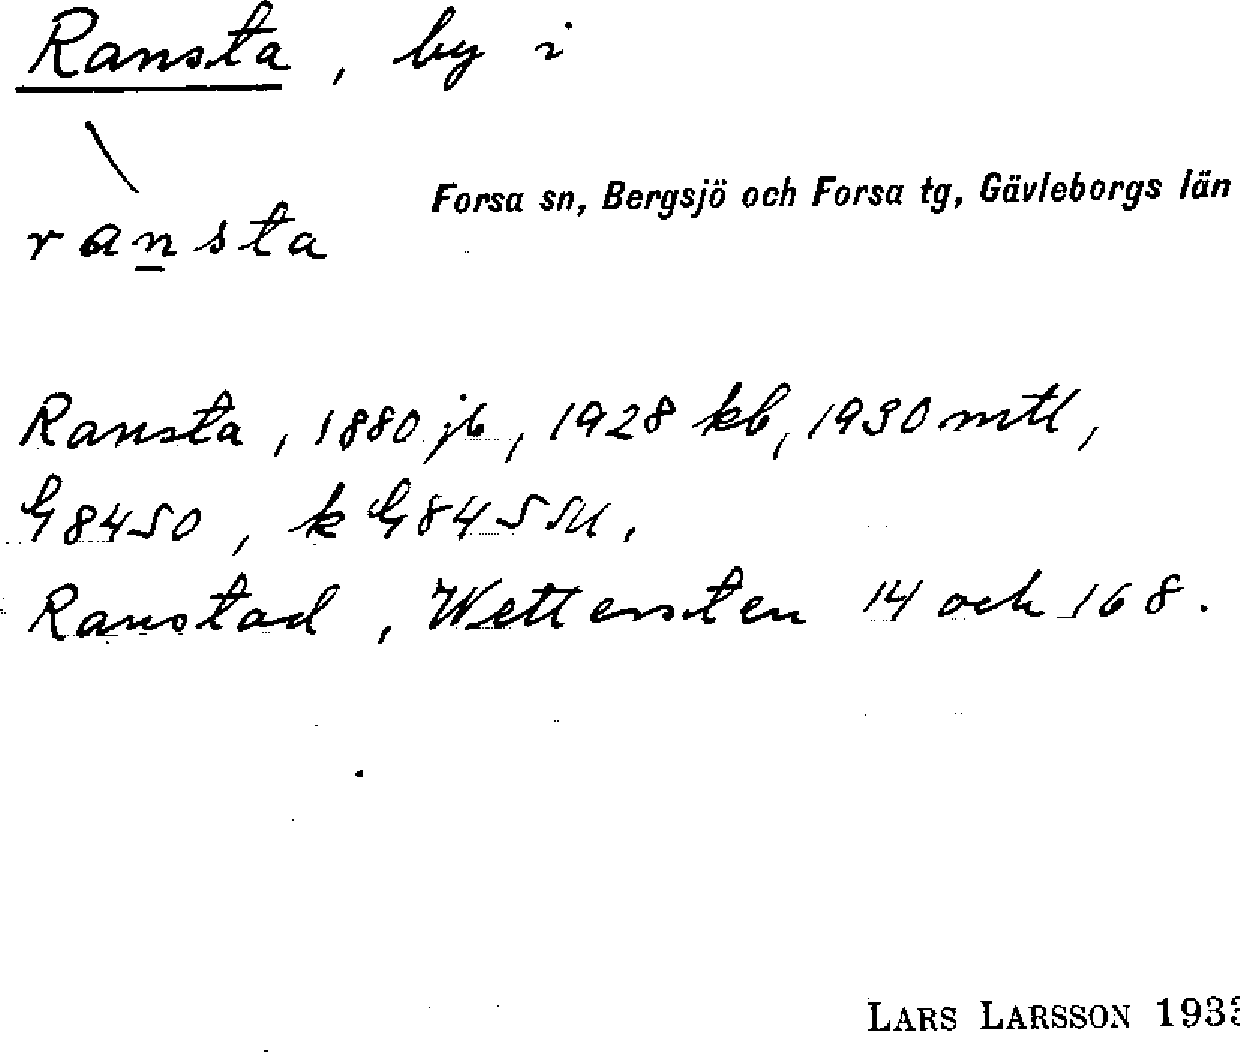 Ransta, by i
Forsa sn, Bergsjö och Forsa tg, Gävleborgs län
ransta
Ransta, 1880 jb, 1928 kb, 1930 mtl,
G 8450, k G 84 5 SU,
Ranstad, Wettersten 14 och 168.
LARS LARSSON 193